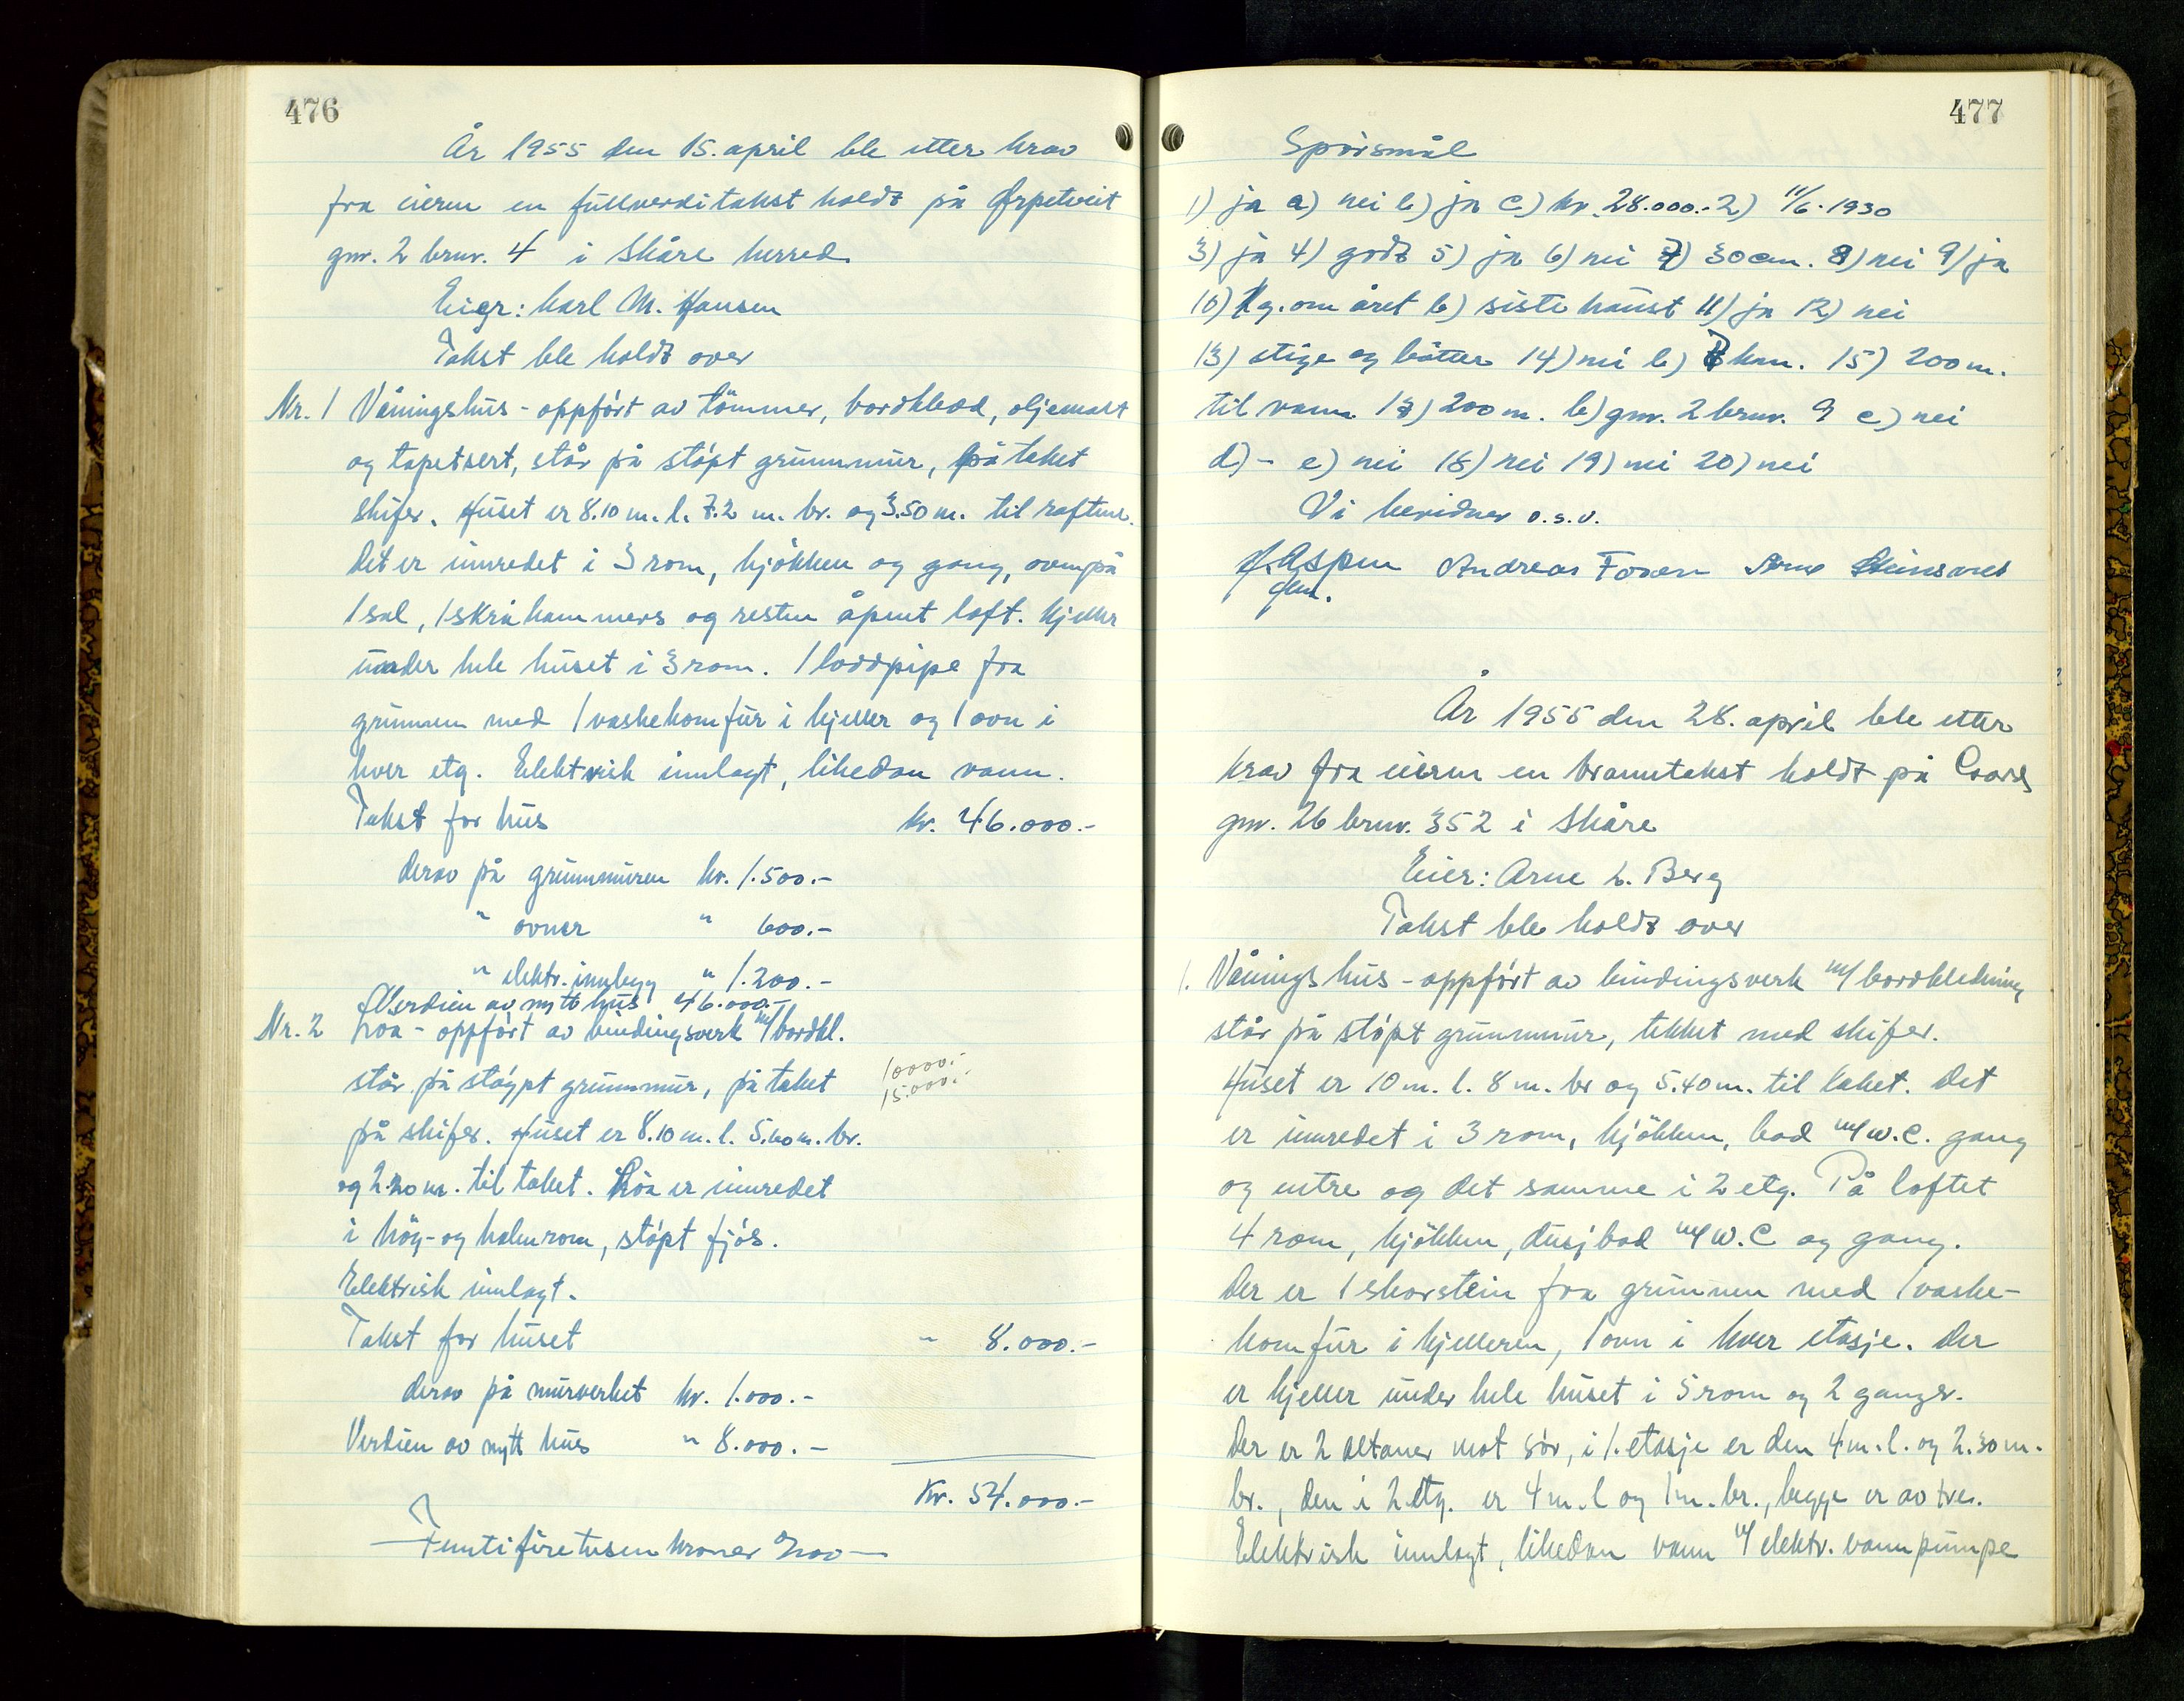 476
År 1955 den 15. april ble etter krav
fra eieren en fullverditakst holdt på Ørpetveit
gnr. 2 brnr. 4 i Skåre herred.
Eier: Karl M. Hansen
Takst ble holdt over
Nr. 1 Våningshus - oppført av tømmer, bordkledd, oljemalt
og tapetsert, står på støpt grunnmur, på taket
skifer. Huset er 8.10 m. l. 7.2 m. br. og 3.50 m. til raftene.
Det er innredet i 3 rom, kjøkken og gang, ovenpå
1 sal, 1 skråkammers og resten åpent loft. Kjeller
under hele huset i 3 rom. 1 loddpipe fra
grunnen med 1 vaskekomfur i kjeller og 1 ovn i
hver etg. Elektrisk innlagt, likedan vann.
Takst for hus kr. 46.000.-
derav på grunnmuren kr. 1.500.-
" ovner " 600.-
" elektr. innlegg " 1.200.-
Verdien av nytt hus 46.000.-
Nr. 2 Løa - oppført av bindingsverk m/bordkl.
står på støypt grunnmur, på taket
10000.-
15.000.-
på skifer. Huset er 8.10 m. l. 5.60 m. br.
og 2.20 m. til taket. Løa er innredet
i høy- og halmrom, støpt fjøs.
Elektrisk innlagt.
Takst for huset " 8.000.-
derav på murverket kr. 1.000.-
Verdien av nytt hus " 8.000.-
Kr. 54.000.-
- Femtifiretusen kroner 00/100 -
477
Spørsmål
1) ja a) nei b) ja c) kr. 28.000.- 2) 11/6. 1930
3) ja 4) godt 5) ja 6) nei 7) 30 cm. 8) nei 9) ja
10) 1 g. om året b) siste haust 11) ja 12) nei
13) stige og bøtter 14) nei b) km. 15) 200 m.
til vann 17) 200 m. b) gnr. 2 brnr. 9 c) nei
d) - e) nei 18) nei 19) nei 20) nei
Vi bevidner o.s.v.
J. Aspen Andreas Foren Arne Steinsnes
År 1955 den 28. april ble etter
krav fra eieren en branntakst holdt på
gnr. 26 brnr. 352 i Skåre
Eier: Arne L. Berg
Takst ble holdt over
1. Våningshus - oppført av bindingsverk m/bordkledning
står på støpt grunnmur, tekket med skifer.
Huset er 10 m. l. 8 m. br og 5.40 m. til taket. Det
er innredet i 3 rom, kjøkken, bad m/w.c. gang
og entre og det samme i 2 etg. På loftet
4 rom, kjøkken, dusjbad m/W.C og gang.
Der er 1 skorstein fra grunnen med 1 vaske-
komfur i kjelleren, 1 ovn i hver etasje. Der
er kjeller under hele huset i 5 rom og 2 ganger.
Der er 2 altaner mot sør, i 1. etasje er den 4 m. l. og 2.30 m.
br., den i 2 etg. er 4 m. l og 1 m. br., begge er av tre.
Elektrisk innlagt, likedan vann m/elektr. vannpumpe